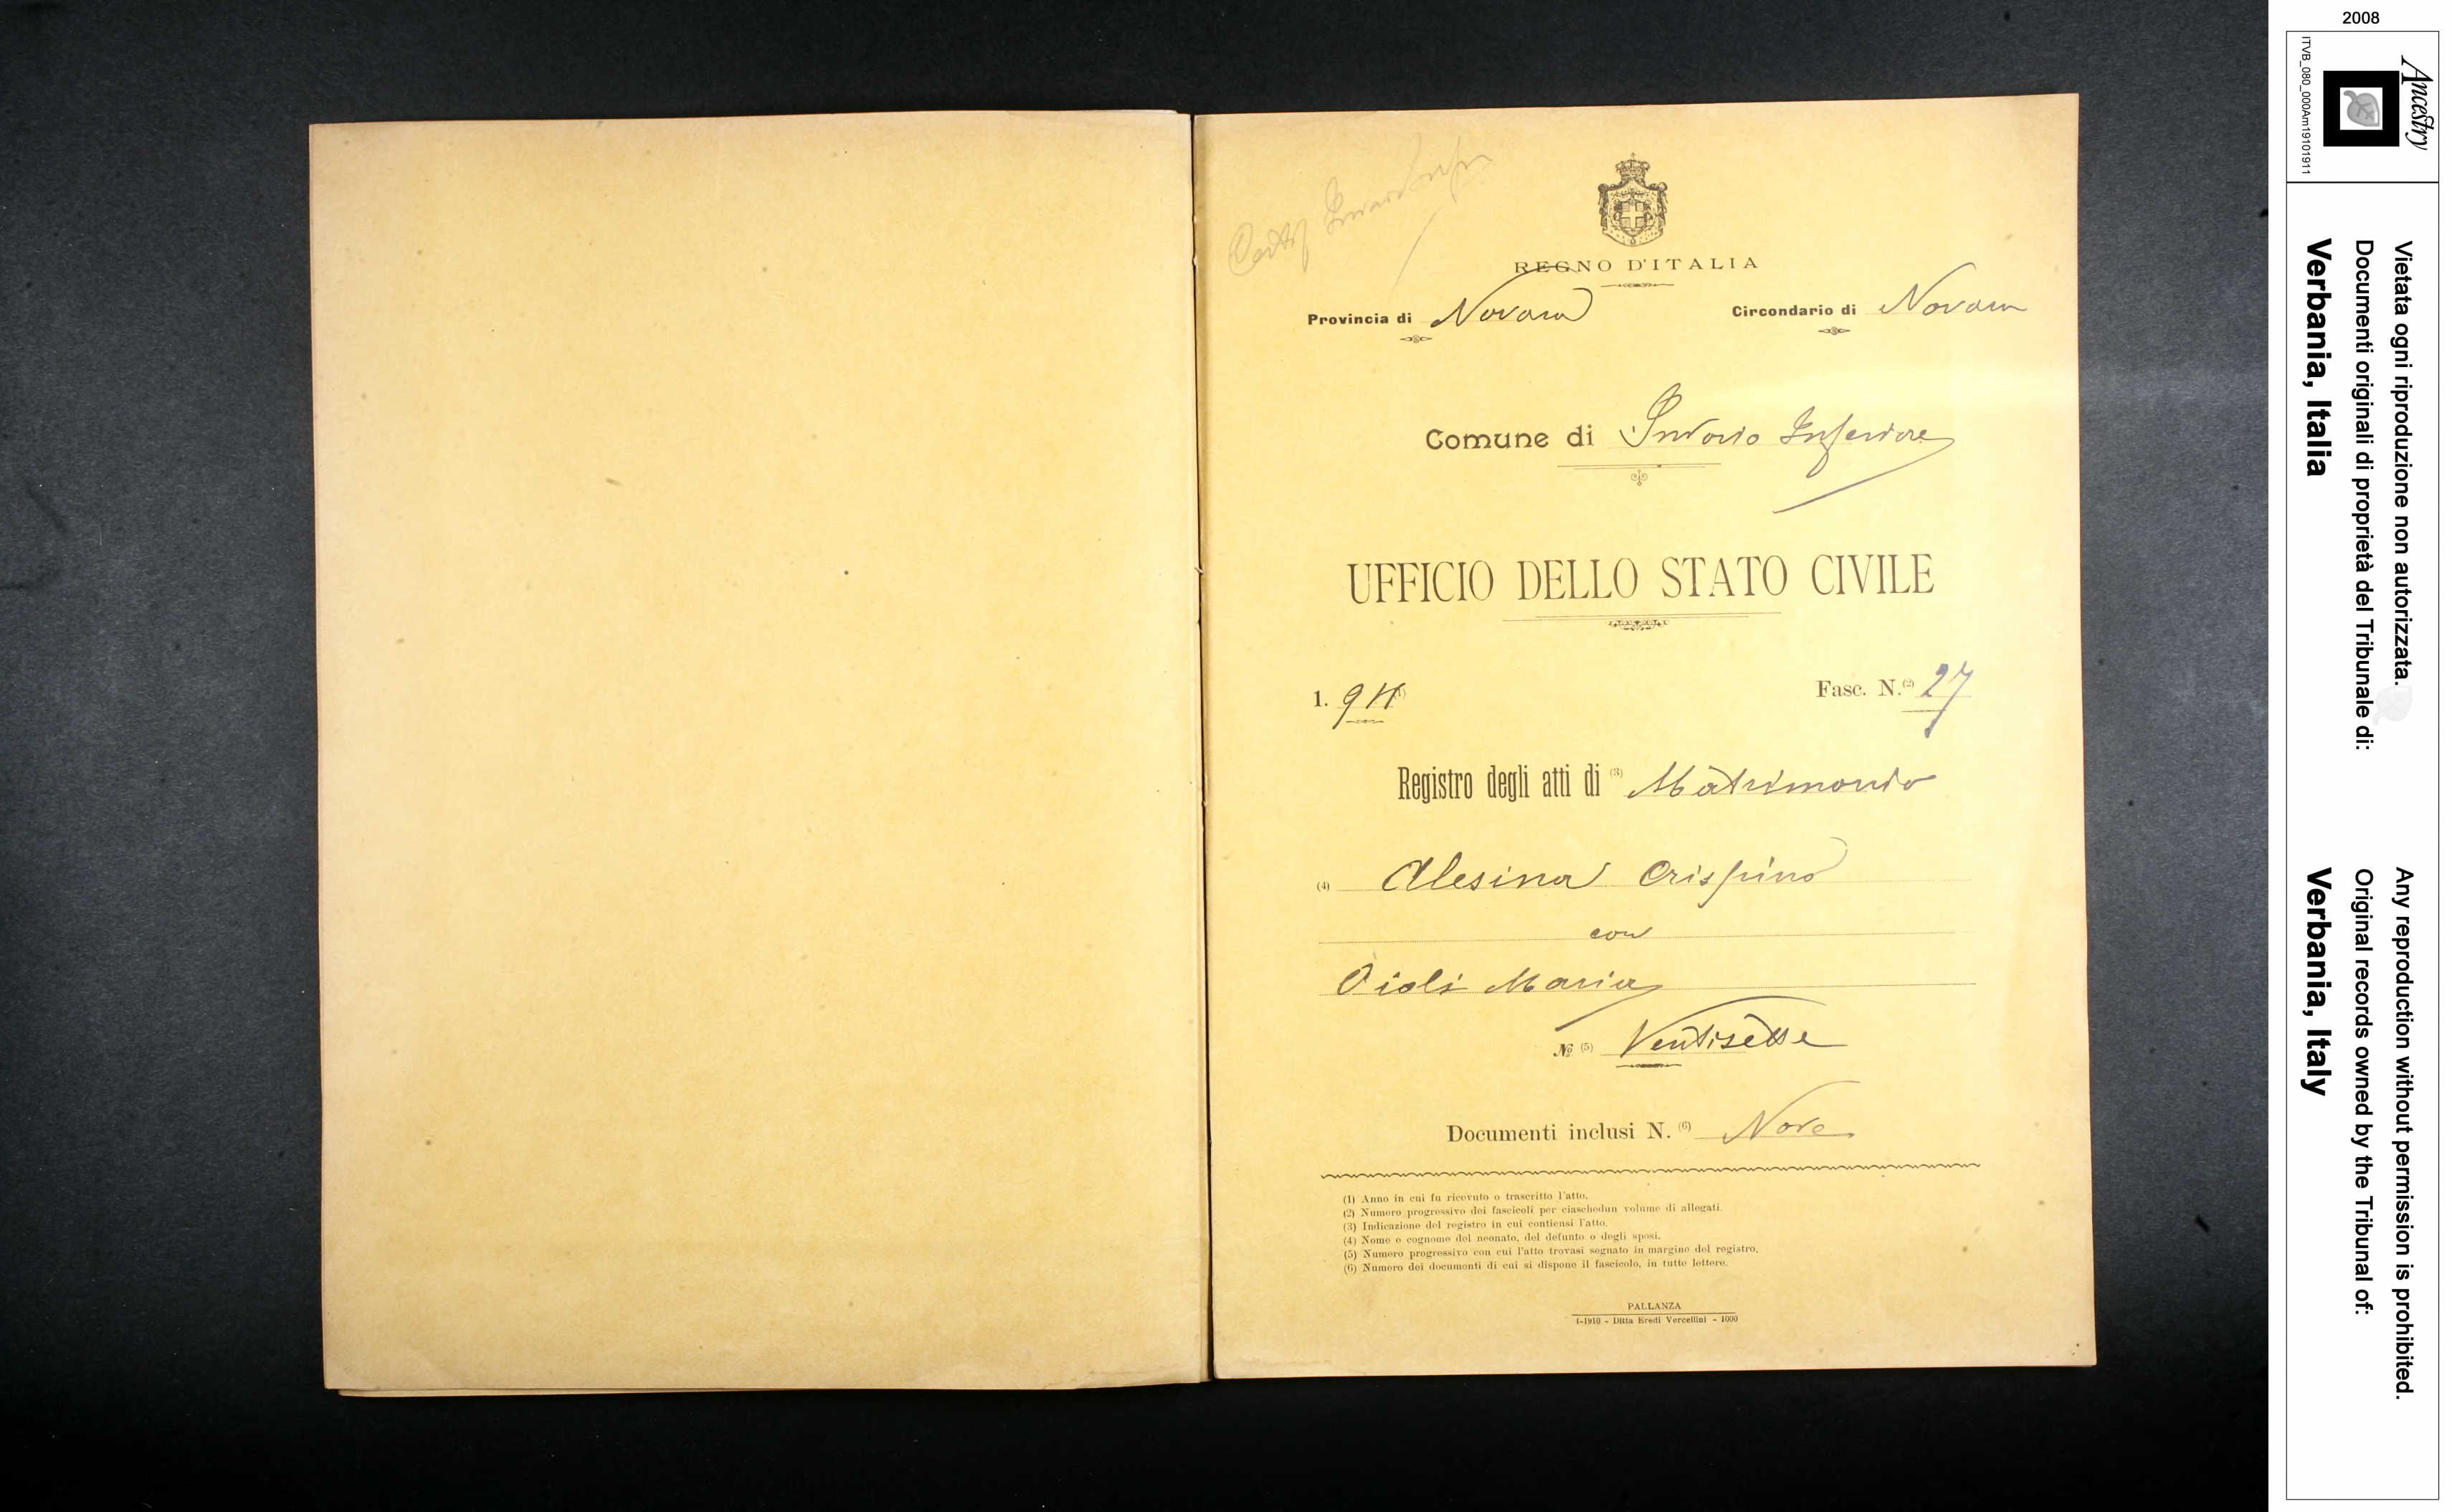 REGNO D'ITALIA
Provincia di Novara
Circondario di Novara
Comune di Invorio Inferiore
UFFICIO DELLO STATO CIVILE
1. 911 (1)
Fasc. N.(2) 27
Registro degli atti di (3) Matrimonio
(4) Alesina Crispino
con
Oioli Maria
No (5) Ventisette
Documenti inclusi N. (6) Nove
(1) Anno in cui fu ricevuto o trascritto l'atto.
(2) Numero progressivo dei fascicoli per ciaschedun volume di allegati.
(3) Indicazione del registro in cui contiensi l'atto.
(4) Nome e cognome del neonato, del defunto o degli sposi.
(5) Numero progressivo con cui l'atto trovasi segnato in margine del registro.
(6) Numero dei documenti di cui si dispone il fascicolo, in tutte lettere.
PALLANZA
4-1910 - Ditta Eredi Vercellini - 1000
2008
Ancestry
ITVB_080_000Am19101911
Vietata ogni riproduzione non autorizzata.
Documenti originali di proprietà del Tribunale di:
Verbania, Italia
Any reproduction without permission is prohibited.
Original records owned by the Tribunal of:
Verbania, Italy